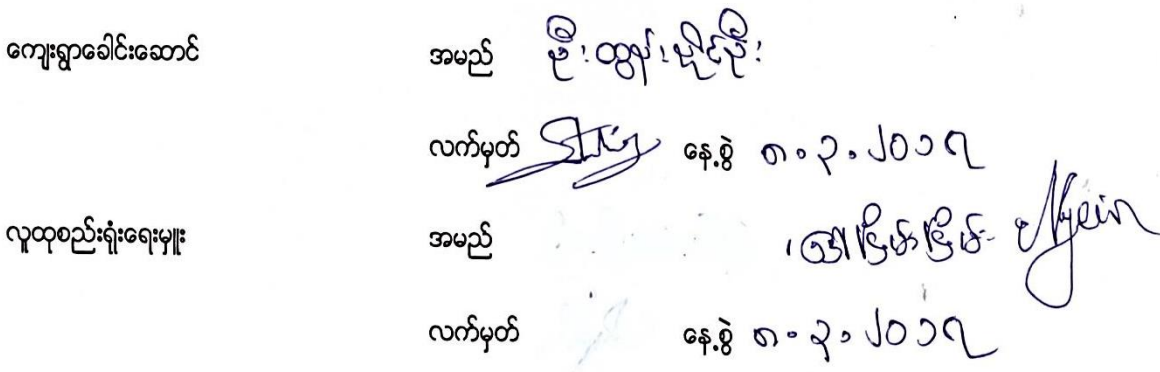 ကျေးရွာခေါင်းဆောင် အမည် ဦးထွန်းခိုင်ဦး
လက်မှတ် နေ့စွဲ ၈.၃.၂၀၁၇
လူထုစည်းရုံးရေးမှူး အမည် ဒေါ်ငြိမ်းငြိမ်း Nyein
လက်မှတ် နေ့စွဲ ၈.၃.၂၀၁၇